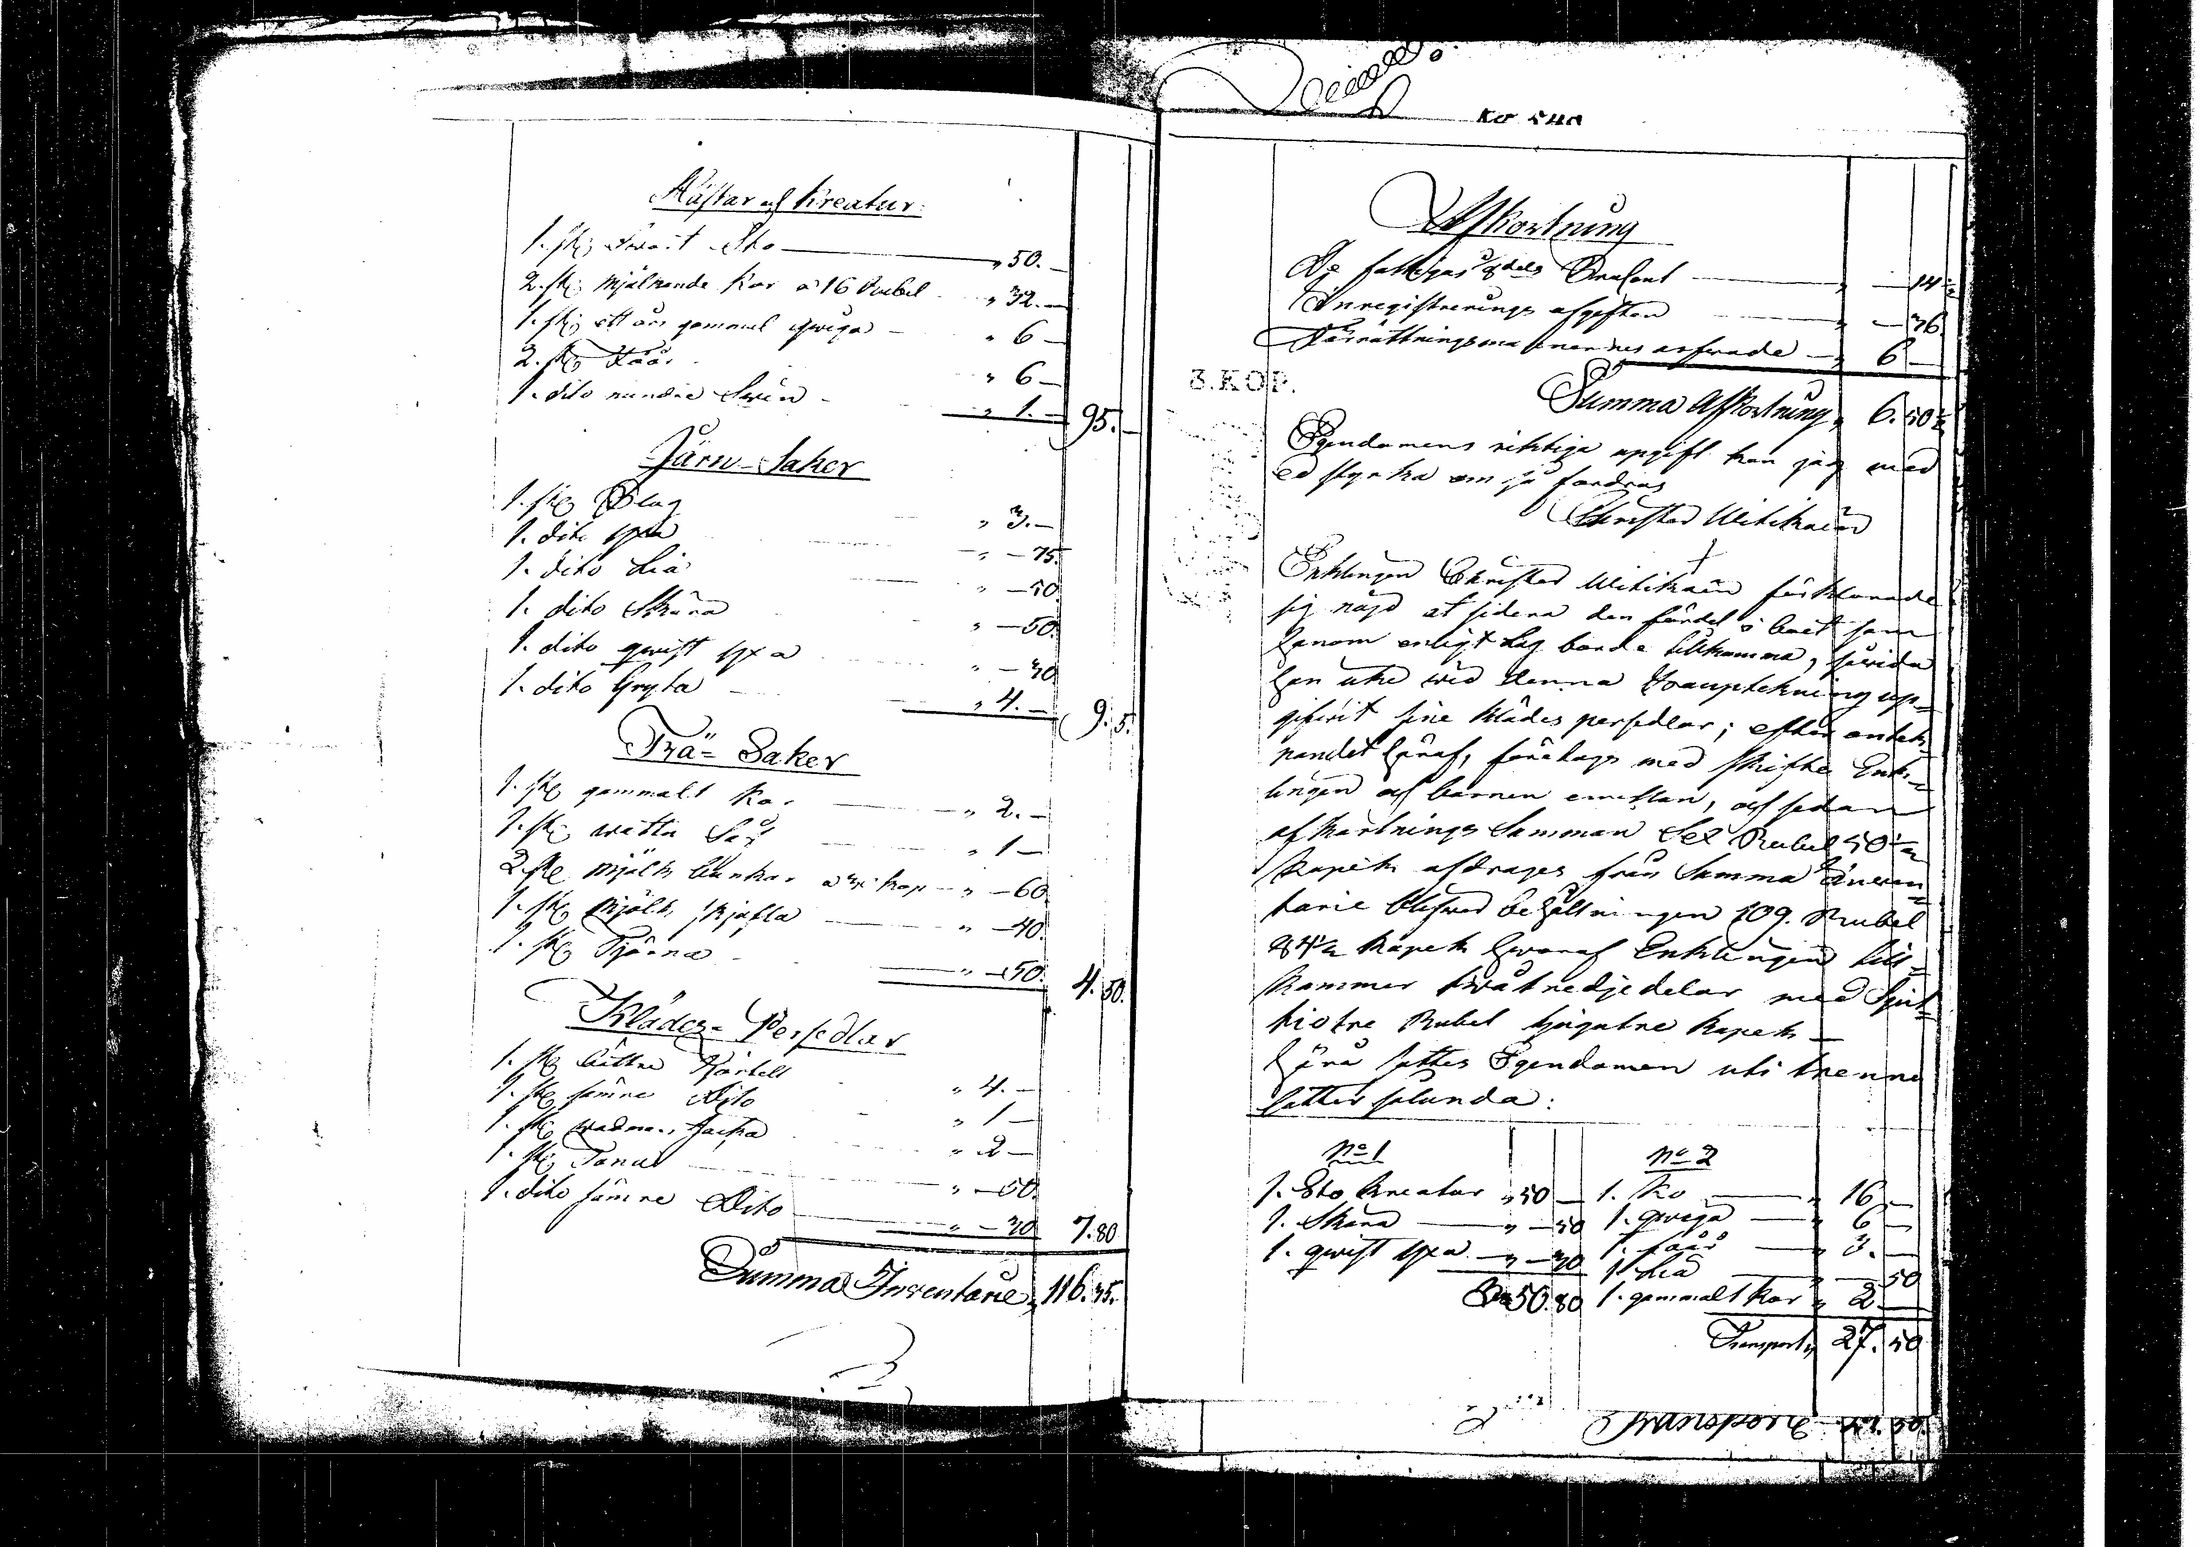 Hästar och Kreatur
1. st: Swart Sto " 50. —
2. st: mjölkande Kor a 16 Rubel " 32. —
1. st: ett års gammul qwiga " 6 —
2. st: Fåår " 6 —
1. dito mindre Swin " 1. — 95. —
Järn-Saker
1. st: Plog " 3. —
1. dito yxa " — 75.
1. dito Lia " — 50
1. dito Skära " — 50.
1. dito qwist yxa " — 30
1. dito Gryta " 4. — 9. 5.
Trä-Saker
1. st: gammalt Kar " 2. —
1. st: watu Så " 1 —
2. st: mjölk bunkar a 30 kop " — 60
1. st: mjölk " — 40.
1. st: Tjärna " — 50. 4. 50.
Kläder-Persedlar
1. st: bättre Kjortell " 4. —
1. st: sämre Dito " 1 —
1. st: wadmals Jacka " 2 —
1. st: " — 50.
1. dito sämre Dito " — 30 7. 80
Summa Inventarie " 116. 35.
No 540
Afkortning
De fattigas 8dels Procent " — 14 ½
Inregistrerings afgiften " — 36.
Förrättningsmännernes arfwode " 6 —
3. KOP.
Summa Afkortning " 6. 50 ½
Egendomens riktiga upgift kan jag med
ed styrka om så fordras
Christer Uitikain
Enklingen Christer Uitikain förklarade
sig nöjd at sidera den fördel i boet som
honom enligt Lag borde tillkomma, såwida
han icke wid denna Boupteckning up-
gifwit sine Klädes persedlar; efter anteck-
nandet häraf, företogs med skifte Enk-
lingen och barnen emellan, och sedan
afkortnings Summan Sex Rubel 50 ½
Kopek afdrages från Summa Inwen-
tarie blifwer behållningen 109. Rubel
84 ½ Kopek hwaraf Enklingen till-
kommer twåtredjedelar med Sjut-
tiotre Rubel tjugutre Kopek —
Härå sattes Egendomen uti trenne
lotter sålunda:
No 1
1. Sto Kreatur " 50 —
1. Skära " — 50
1. qwist yxa " — 30
50. 80
No 2
1. Ko " 16 —
1. qwiga " 6 —
1. fåår " 3. —
1. Lia " — 50
1. gammalt Kar " 2 —
Transport " 27. 50
Transport